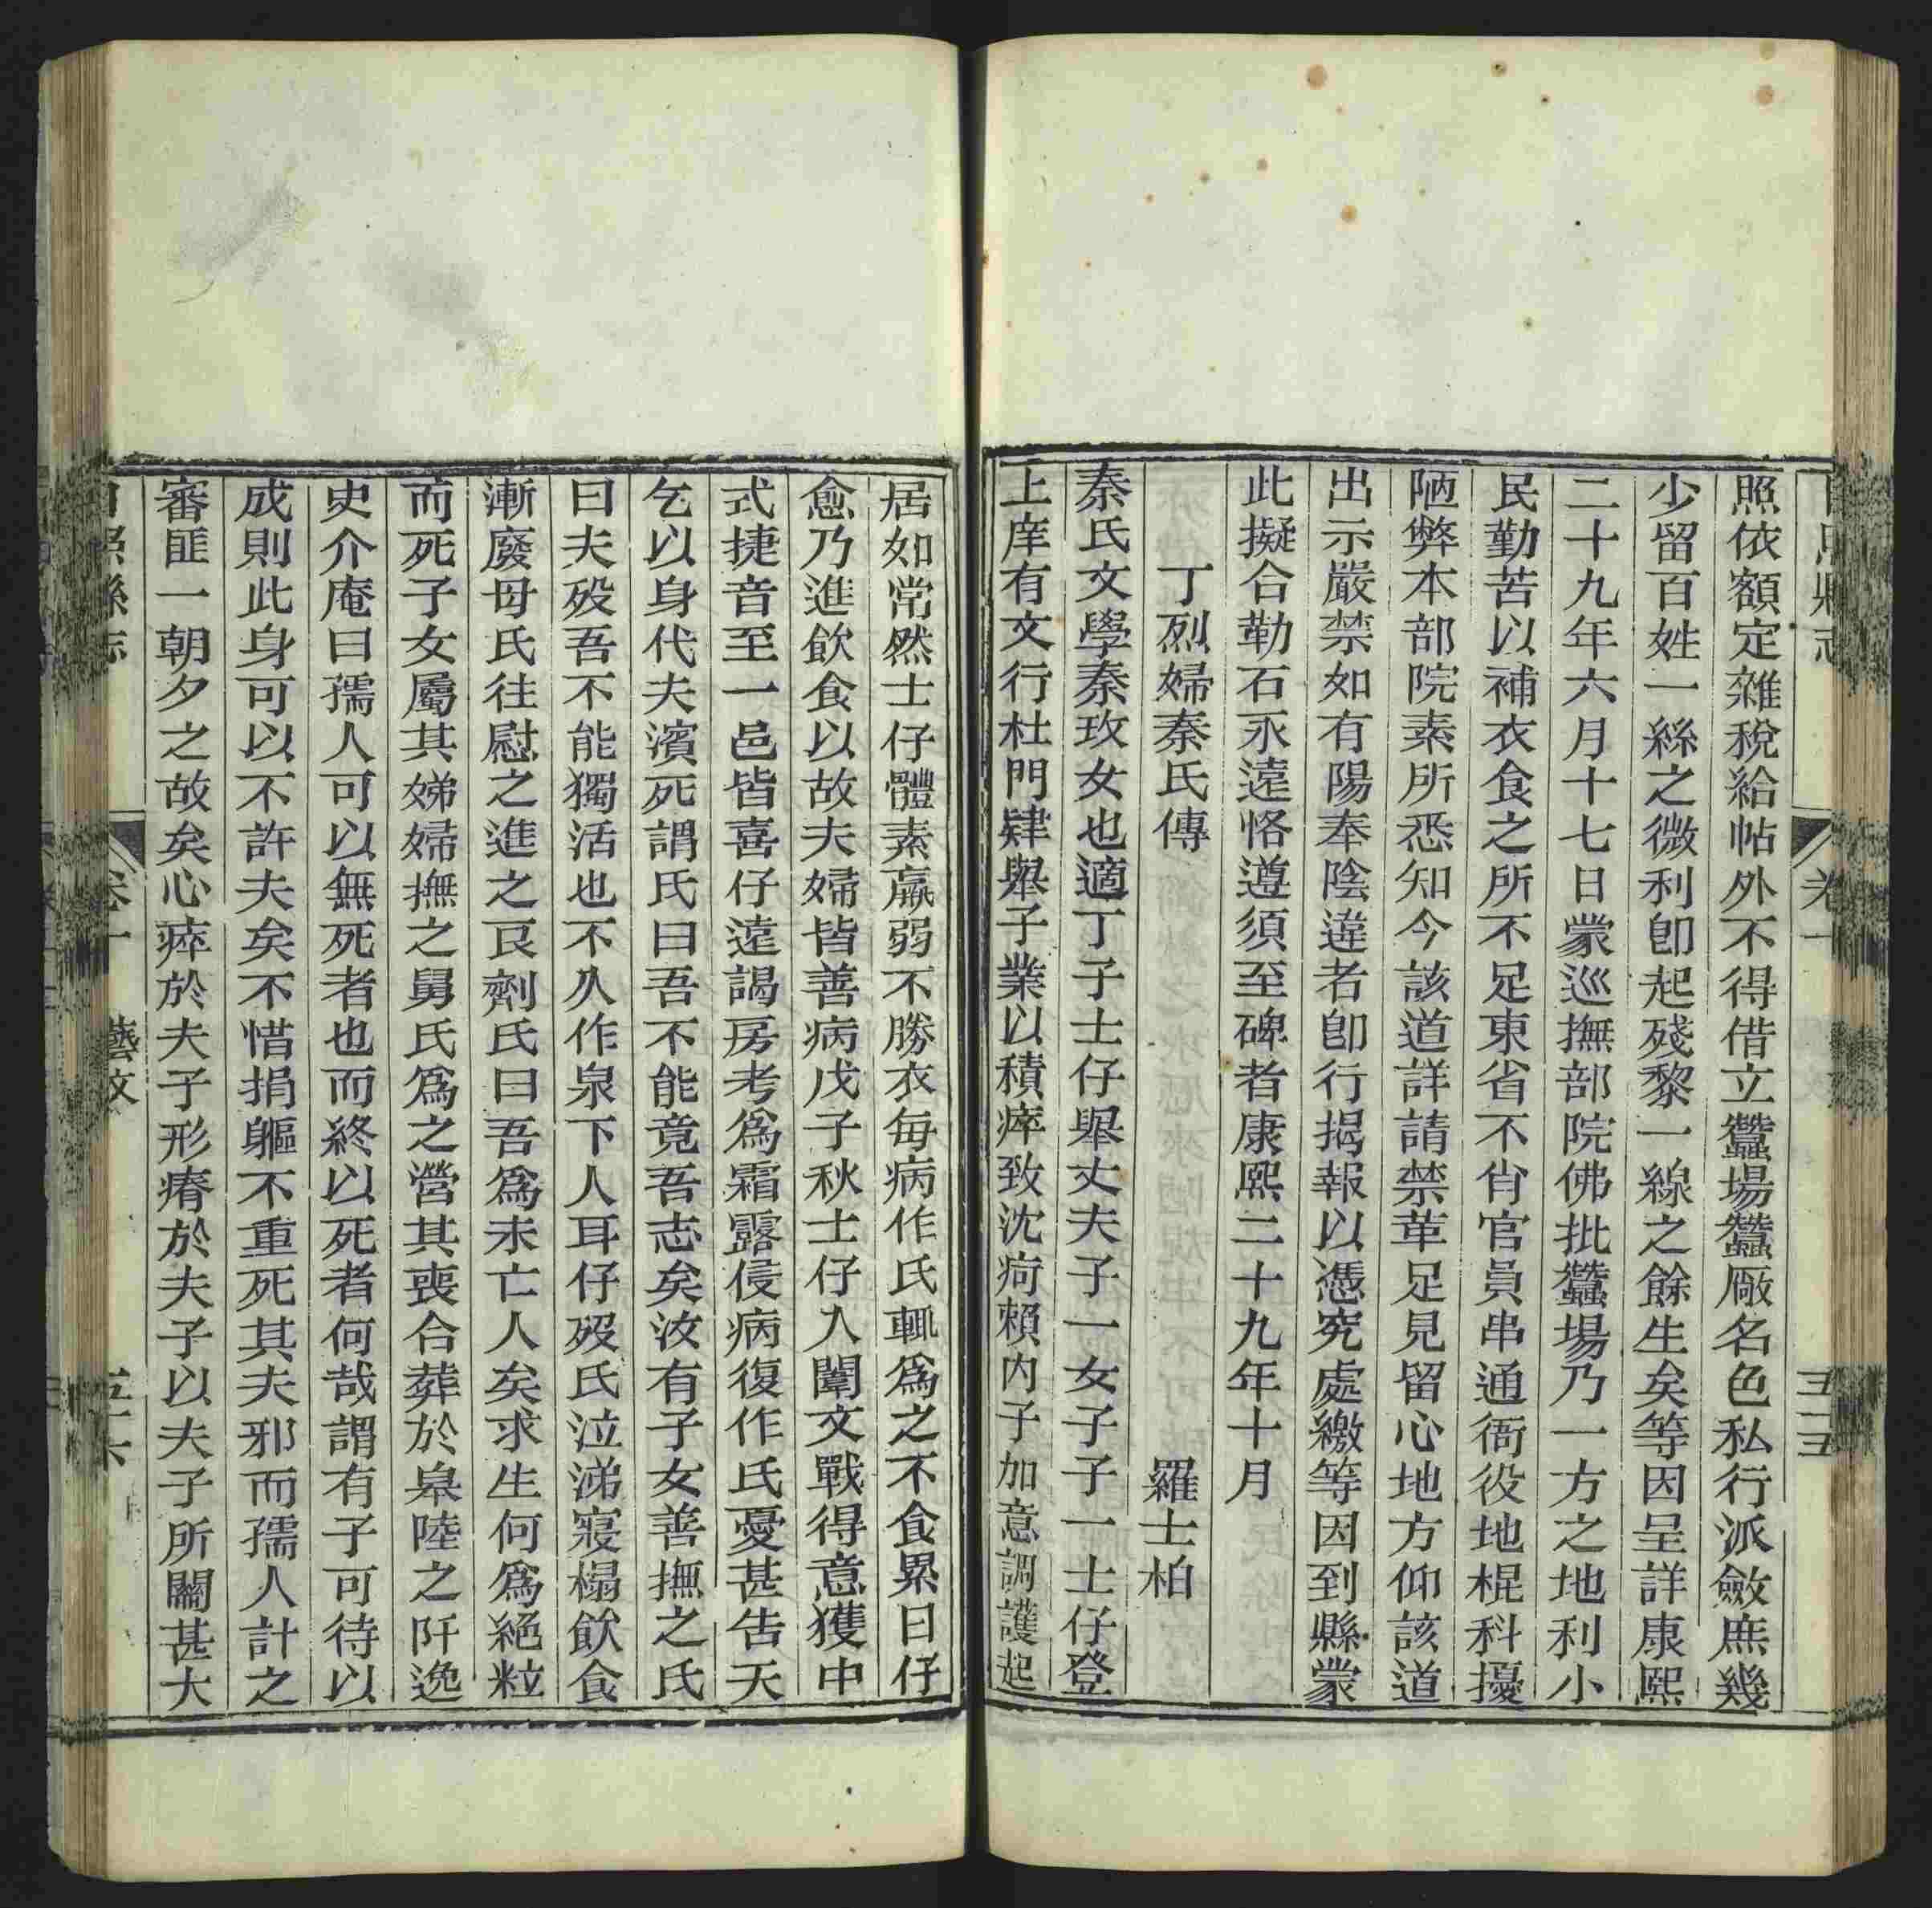 日照縣志 卷十 三十五
照依額定雜稅給帖外不得借立蠶場蠶廠名色私行派斂庶幾
少留百姓一絲之微利卽起殘黎一線之餘生矣等因呈詳康熙
二十九年六月十七日蒙巡撫部院佛批蠶場乃一方之地利小
民勤苦以補衣食之所不足東省不肖官員串通衙役地棍科擾
陋弊本部院素所悉知今該道詳請禁革足見留心地方仰該道
出示嚴禁如有陽奉陰違者卽行揭報以憑究處繳等因到縣蒙
此擬合勒石永遠恪遵須至碑者康熙二十九年十月
丁烈婦秦氏傳 羅士柏
秦氏文學秦玫女也適丁子士仔舉丈夫子一女子子一士仔登
上庠有文行杜門肄舉子業以積瘁致沈疴賴內子加意調護起
居如常然士仔體素羸弱不勝衣每病作氏輒爲之不食累日仔
愈乃進飲食以故夫婦皆善病戊子秋士仔入闈文戰得意獲中
式捷音至一邑皆喜仔遠謁房考爲霜露侵病復作氏憂甚告天
乞以身代夫濱死謂氏曰吾不能竟吾志矣汝有子女善撫之氏
曰夫歿吾不能獨活也不久作泉下人耳仔歿氏泣涕寢榻飲食
漸廢母氏往慰之進之艮劑氏曰吾爲未亡人矣求生何爲絕粒
而死子女屬其娣婦撫之舅氏爲之營其喪合葬於臯陸之阡逸
史介庵曰孺人可以無死者也而終以死者何哉謂有子可待以
成則此身可以不許夫矣不惜捐軀不重死其夫邪而孺人計之
審匪一朝夕之故矣心瘁於夫子形瘠於夫子以夫子所關甚大
日照縣志 卷十 藝文 三十六